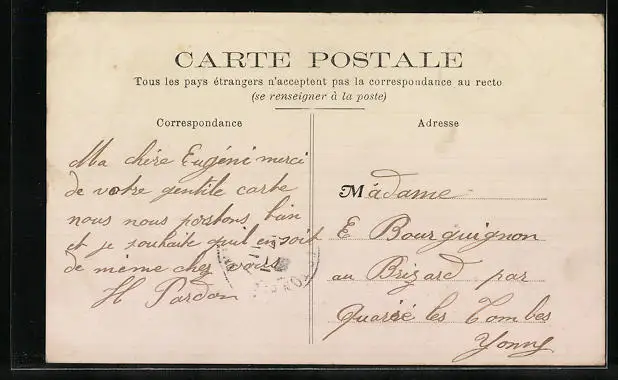 CARTE POSTALE
Tous les pays étrangers n'acceptent pas la correspondance au recto
(se renseigner à la poste)
Correspondance
Ma chère Eugéni merci
de votre gentille carte
nous nous portons bien
et je souhaite qu'il en soit
de même chez vous
H Pardon
Adresse
Madame
E Bourguignon
au Brizard par
Quarré les Tombes
Yonne